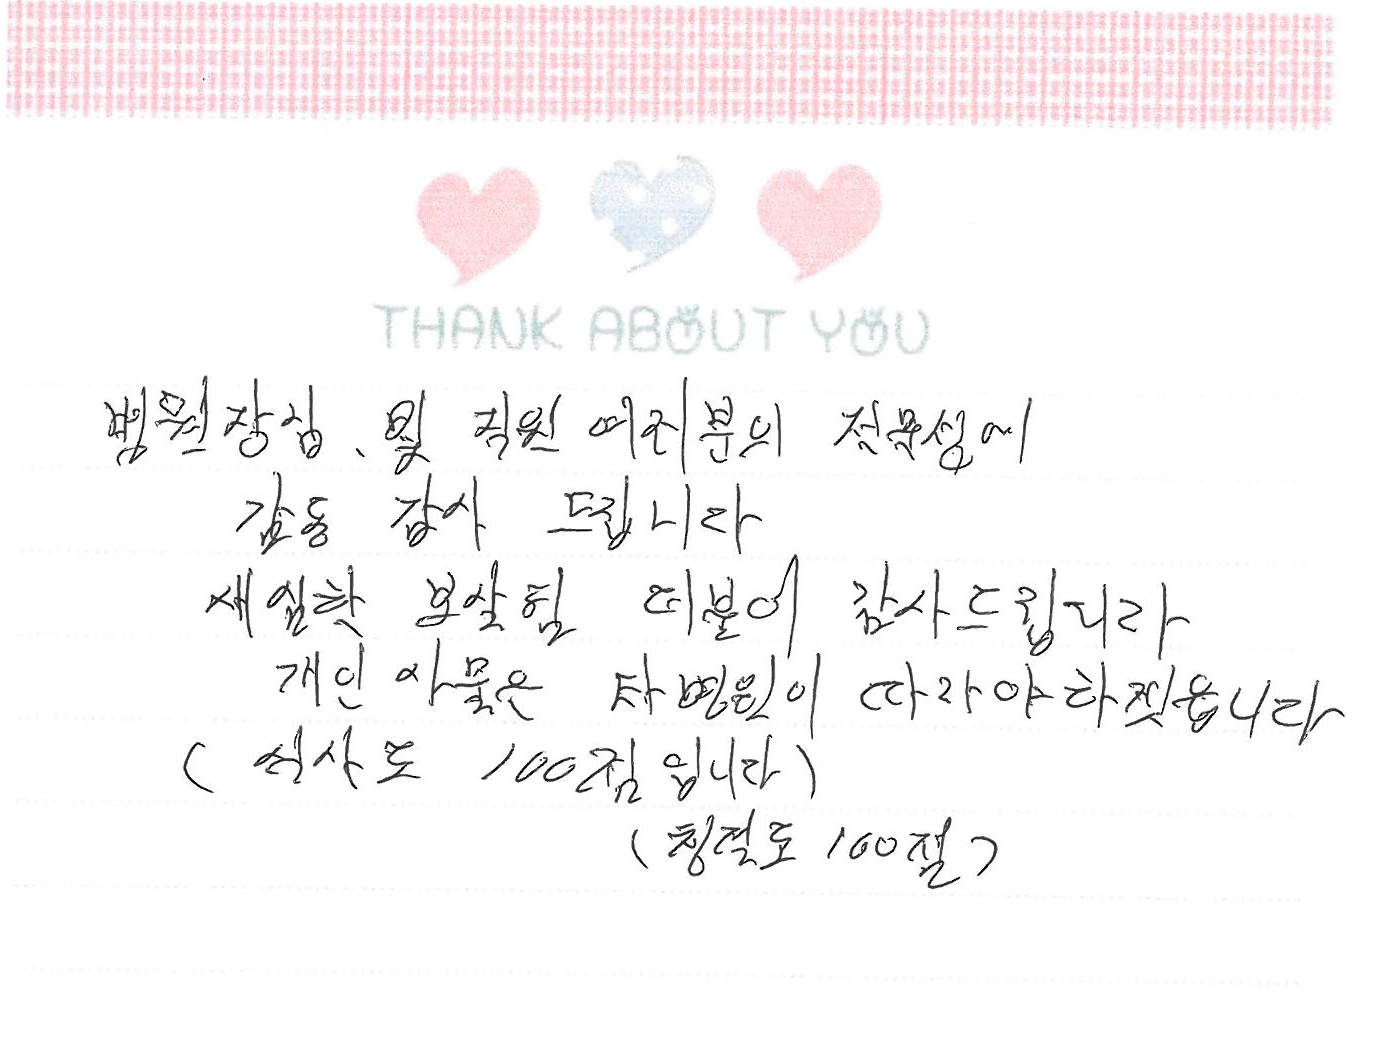 THANK ABOUT YOU
병원장님, 및 직원 여러분의 전문성에
감동 감사 드립니다
세심한 보살핌 더불어 감사드립니다
개인 사물은 타병원이 따라야 하겠습니다
(식사도 100점 입니다)
(친절도 100점)